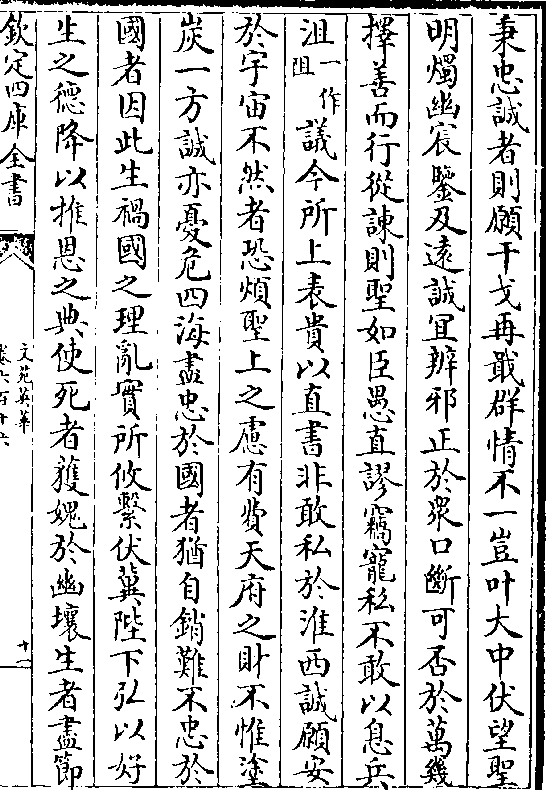 秉忠誠者則願干戈再戢群情不一豈叶大中伏望聖
明燭幽宸鑒及遠誠宜辨邪正於衆口斷可否於萬幾
擇善而行從諫則聖如臣愚直謬竊寵私不敢以息兵
沮一作阻議今所上表貴以直書非敢私於淮西誠願安
於宇宙不然者恐煩聖上之慮有費天府之財不惟塗
炭一方誠亦憂危四海盡忠於國者猶自銷難不忠於
國者因此生禍國之理亂實所攸繫伏冀陛下弘以好
生之德降以推恩之典使死者獲媿於幽壤生者盡節
欽定四庫全書
文苑英華
卷六百十六
十一